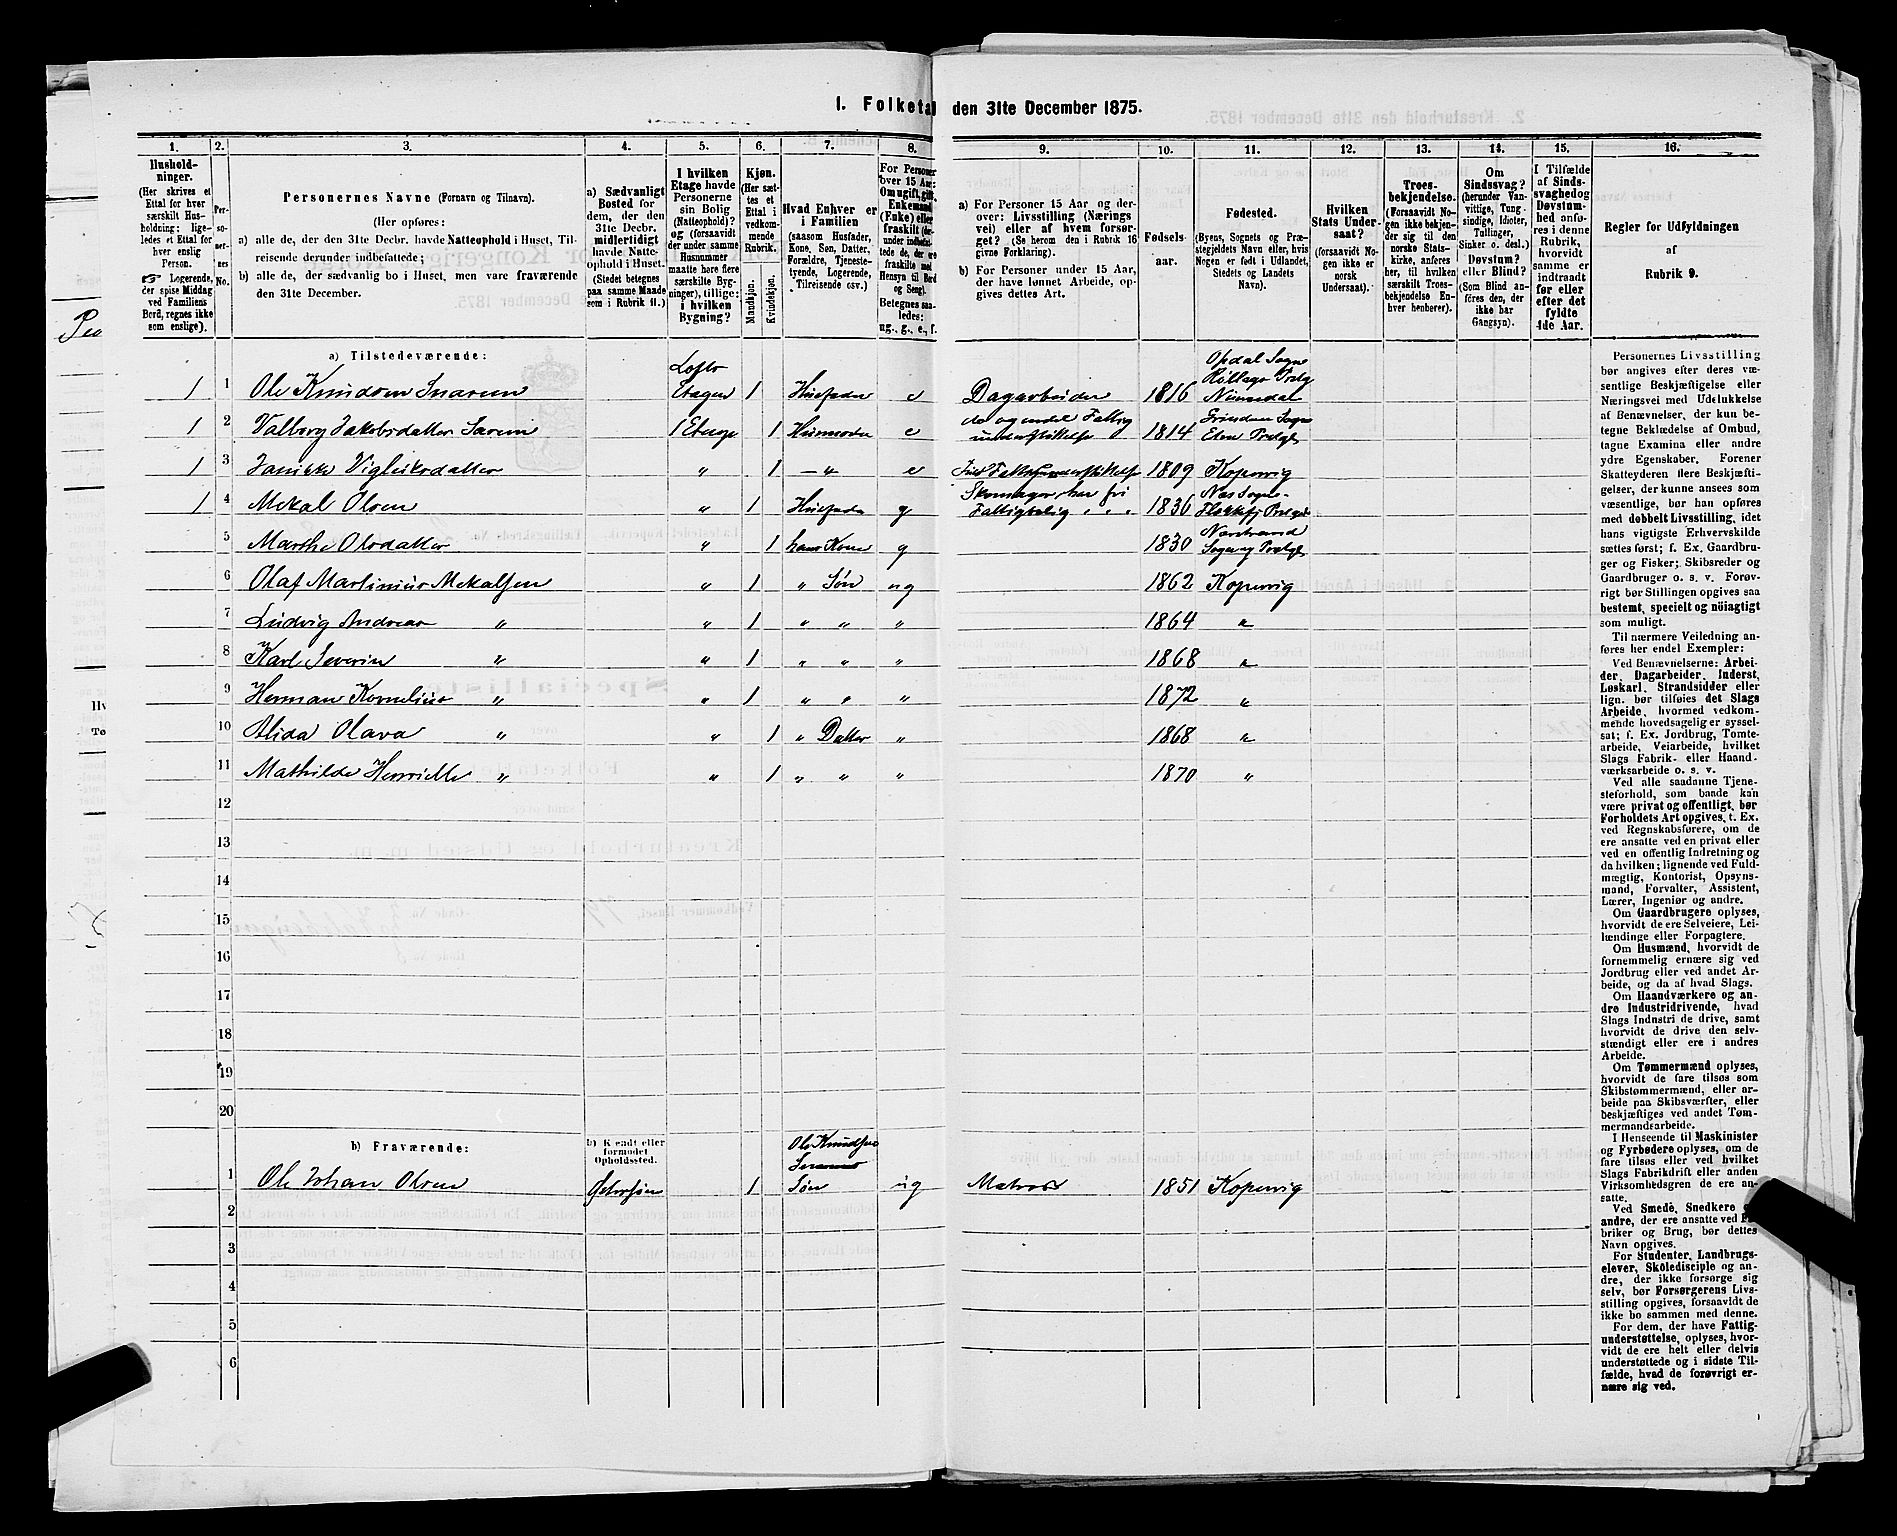 1. Folketal den 31te December 1875.
1. 2. 3. 4. 5. 6. 7. 8. 9. 10. 11. 12. 13. 14. 15. 16.
Husholdninger.
(Her skrives et
Ettal for hver
særskilt Husholdning; ligeledes
et Ettal for
hver enslig
Person.
Logerende,
der spise Middag
ved Familiens
Bord, regnes ikke
som enslige).
Personernes No.
Personernes Navne (Fornavn og Tilnavn).
(Her opføres:
a) alle de, der den 31te Decbr. havde Natteophold i Huset, Tilreisende
derunder indbefattede;
b) alle de, der sædvanlig bo i Huset, men vare fraværende
den 31te December.)
a) Sædvanligt
Bosted for
dem, der den
31te Decbr.
midlertidigt
havde Natteophold
i Huset.
(Stedet betegnes
paa samme Maade
som i Rubrik 11.)
I hvilken
Etage havde
Personerne
sin Bolig
(Natteophold)?
og (forsaavidt
der under samme
Husnummer
maatte høre flere
særskilte Bygninger),
tillige:
i hvilken
Bygning?
Kjøn.
(Her sættes
et
Ettal i
vedkommende
Rubrik.
Mandkjøn. Kvindekjøn.
Hvad Enhver er
i Familien
(saasom Husfader,
Kone, Søn, Datter,
Forældre, Tjenestetyende,
Logerende,
Tilreisende osv.)
For Personer
over 15 Aar:
Om ugift, gift,
Enkemand
(Enke) eller
fraskilt
Betegnes saaledes:
ug., g., e., f.
a) For Personer 15 Aar og derover:
Livsstilling (Næringsvei)
eller af hvem forsørget?
(Se herom den i Rubrik 16
givne Forklaring).
b) For Personer under 15 Aar,
der have lønnet Arbeide, opgives
dettes Art.
Fødselsaar.
Fødested.
(Byens, Sognets og Præstegjeldets
Navn eller, hvis
Nogen er født i Udlandet,
Stedets og Landets
Navn).
Hvilken
Stats Undersaat?
(forsaavidt Nogen
ikke er
norsk
Undersaat).
Troesbekjendelse.
(Forsaavidt Nogen
ikke bekjender
sig til den
norske Statskirke,
anføres
her, til hvilken
særskilt Troesbekjendelse
Enhver
henhører).
Om
Sindssvag?
(herunder Vanvittige,
Tungsindige,
Idioter,
Tullinger,
Sinker o. desl.)
Døvstum?
eller Blind?
(Som Blind anføres
den, der
ikke har
Gangsyn).
I Tilfælde
af Sindssvaghed
og
Døvstumhed
anføres
i denne
Rubrik,
hvorvidt
samme er
indtraadt
før eller
efter det
fyldte
4de Aar.
Regler for Udfyldningen
af
Rubrik 9.
a) Tilstedeværende:
1 1 Ole Knudsen Snarem Lofts Etagen 1 Husfader e Dagarbeider 1816 Opdal Sogn Rollags Prælg Numedal
1 2 Valborg Jakobsdatter Sarem 1 Etage 1 Husmoder e understøttelse 1814
1 3 Janiske Vigleiksdatter " 1 — " e 1809 Kopervig
1 4 Mekal Olsen " 1 Husfader g Skomager har fri Fattigbolig 1836 Næs Sogn Flekkefj Prælg
5 Marthe Olsdatter " 1 hans Kone g 1830 Nærstrand Sogn og Prælg
6 Olaf Martinius Mekalsen " 1 " Søn ug 1862 Kopervig
7 Ludvig Andreas " " 1 " " " 1864 "
8 Karl Severin " " 1 " " " 1868 "
9 Herman Kornelius " " 1 " " " 1872 "
10 Alida Olava " " 1 " Datter " 1868 "
11 Mathilde Henriette " " 1 " " " 1870 "
12
13
14
15
16
17
18
19
20
b) Fraværende:
b) Kjendt eller
formodet
Opholdssted.
1 Ole Johan Olsen Østersøen 1 Ole Knudsens Søn ug Matros 1851 Kopervig
2
3
4
5
6
Personernes Livsstilling
bør angives efter deres væsentlige
Beskjæftigelse eller
Næringsvei med Udelukkelse
af Benævnelser, der kun betegne
Beklædelse af Ombud,
tagne Examina eller andre
ydre Egenskaber. Forener
Skatteyderen flere Beskjæftigelser,
der kunne ansees som
væsentlige, bør han opføres
med dobbelt Livsstilling, idet
hans vigtigste Erhvervskilde
sættes først; f. Ex. Gaardbruger
og Fisker; Skibsreder og
Gaardbruger o. s. v. Forøvrigt
bør Stillingen opgives saa
bestemt, specielt og nöiagtigt
som muligt.
Til nærmere Veiledning anføres
her endel Exempler:
Ved Benævnelserne: Arbeider,
Dagarbeider, Inderst,
Løskarl, Strandsidder eller
lign. bør tilføies det Slags
Arbeide, hvormed vedkommende
hovedsagelig er sysselsat;
f. Ex. Jordbrug, Tomtearbeide,
Veiarbeide, hvilket
Slags Fabrik- eller Haandværksarbeide
o. s. v.
Ved alle saadanne Tjenesteforhold,
som baade kan
være privat og offentligt, bør
Forholdets Art opgives, t. Ex.
ved Regnskabsførere, om de
ere ansatte ved en privat eller
ved en offentlig Indretning og
da hvilken; lignende ved Fuldmægtig,
Kontorist, Opsynsmand,
Forvalter, Assistent,
Lærer, Ingeniør og andre.
Om Gaardbrugere oplyses,
hvorvidt de ere Selveiere, Leilændinge
eller Forpagtere.
Om Husmænd, hvorvidt de
fornemmelig ernære sig ved
Jordbrug eller ved andet Arbeide,
og da af hvad Slags.
Om Haandværkere og andre
Industridrivende, hvad
Slags Industri de drive, samt
hvorvidt de drive den selvstændigt
eller ere i andres
Arbeide.
Om Tømmermænd oplyses,
hvorvidt de fare tilsøs som
Skibstømmermænd, eller arbeide
paa Skibsværfter, eller
beskjæftiges ved andet Tømmermandsarbeide.
I Henseende til Maskinister
og Fyrbødere oplyses, om de
fare tilsøs eller ved hvilket
Slags Fabrikdrift eller anden
Virksomhedsgren de ere ansatte.
Ved Smede, Snedkere og
andre, der ere ansatte ved Fabriker
og Brug, bør dettes
Navn opgives.
For Studenter, Landbrugselever,
Skoledisciple og andre,
der ikke forsørge sig
selv, bør Forsørgerens Livsstilling
opgives, forsaavidt de
ikke bo sammen med denne.
For dem, der have Fattigunderstøttelse,
oplyses, hvorvidt
de ere helt eller delvis
understøttede og i sidste Tilfælde,
hvad de forøvrigt ernære
sig ved.